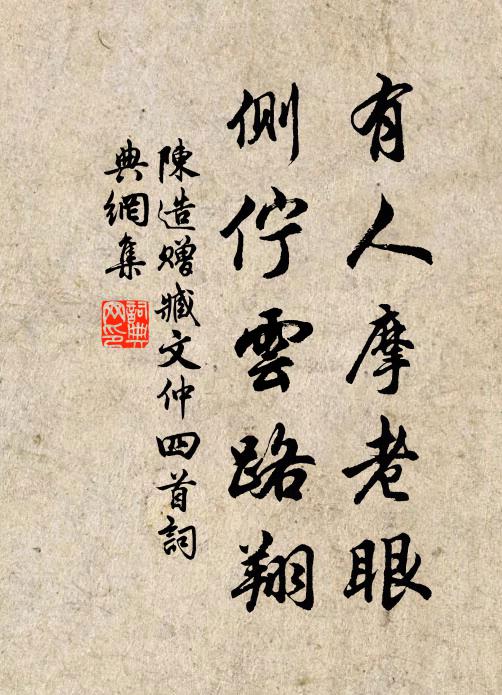 有人摩老眼
側佇雲路翔
陳造贈臧文仲四首詞
典網集
詞典
网印